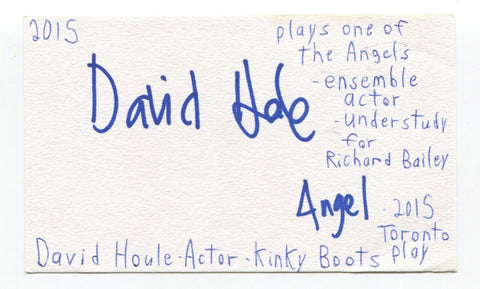 2015
plays one of
the Angels
-ensemble
actor
-understudy
for
Richard Bailey
David Hole
Angel - 2015
Toronto
play
David Houle-Actor-Kinky Boots